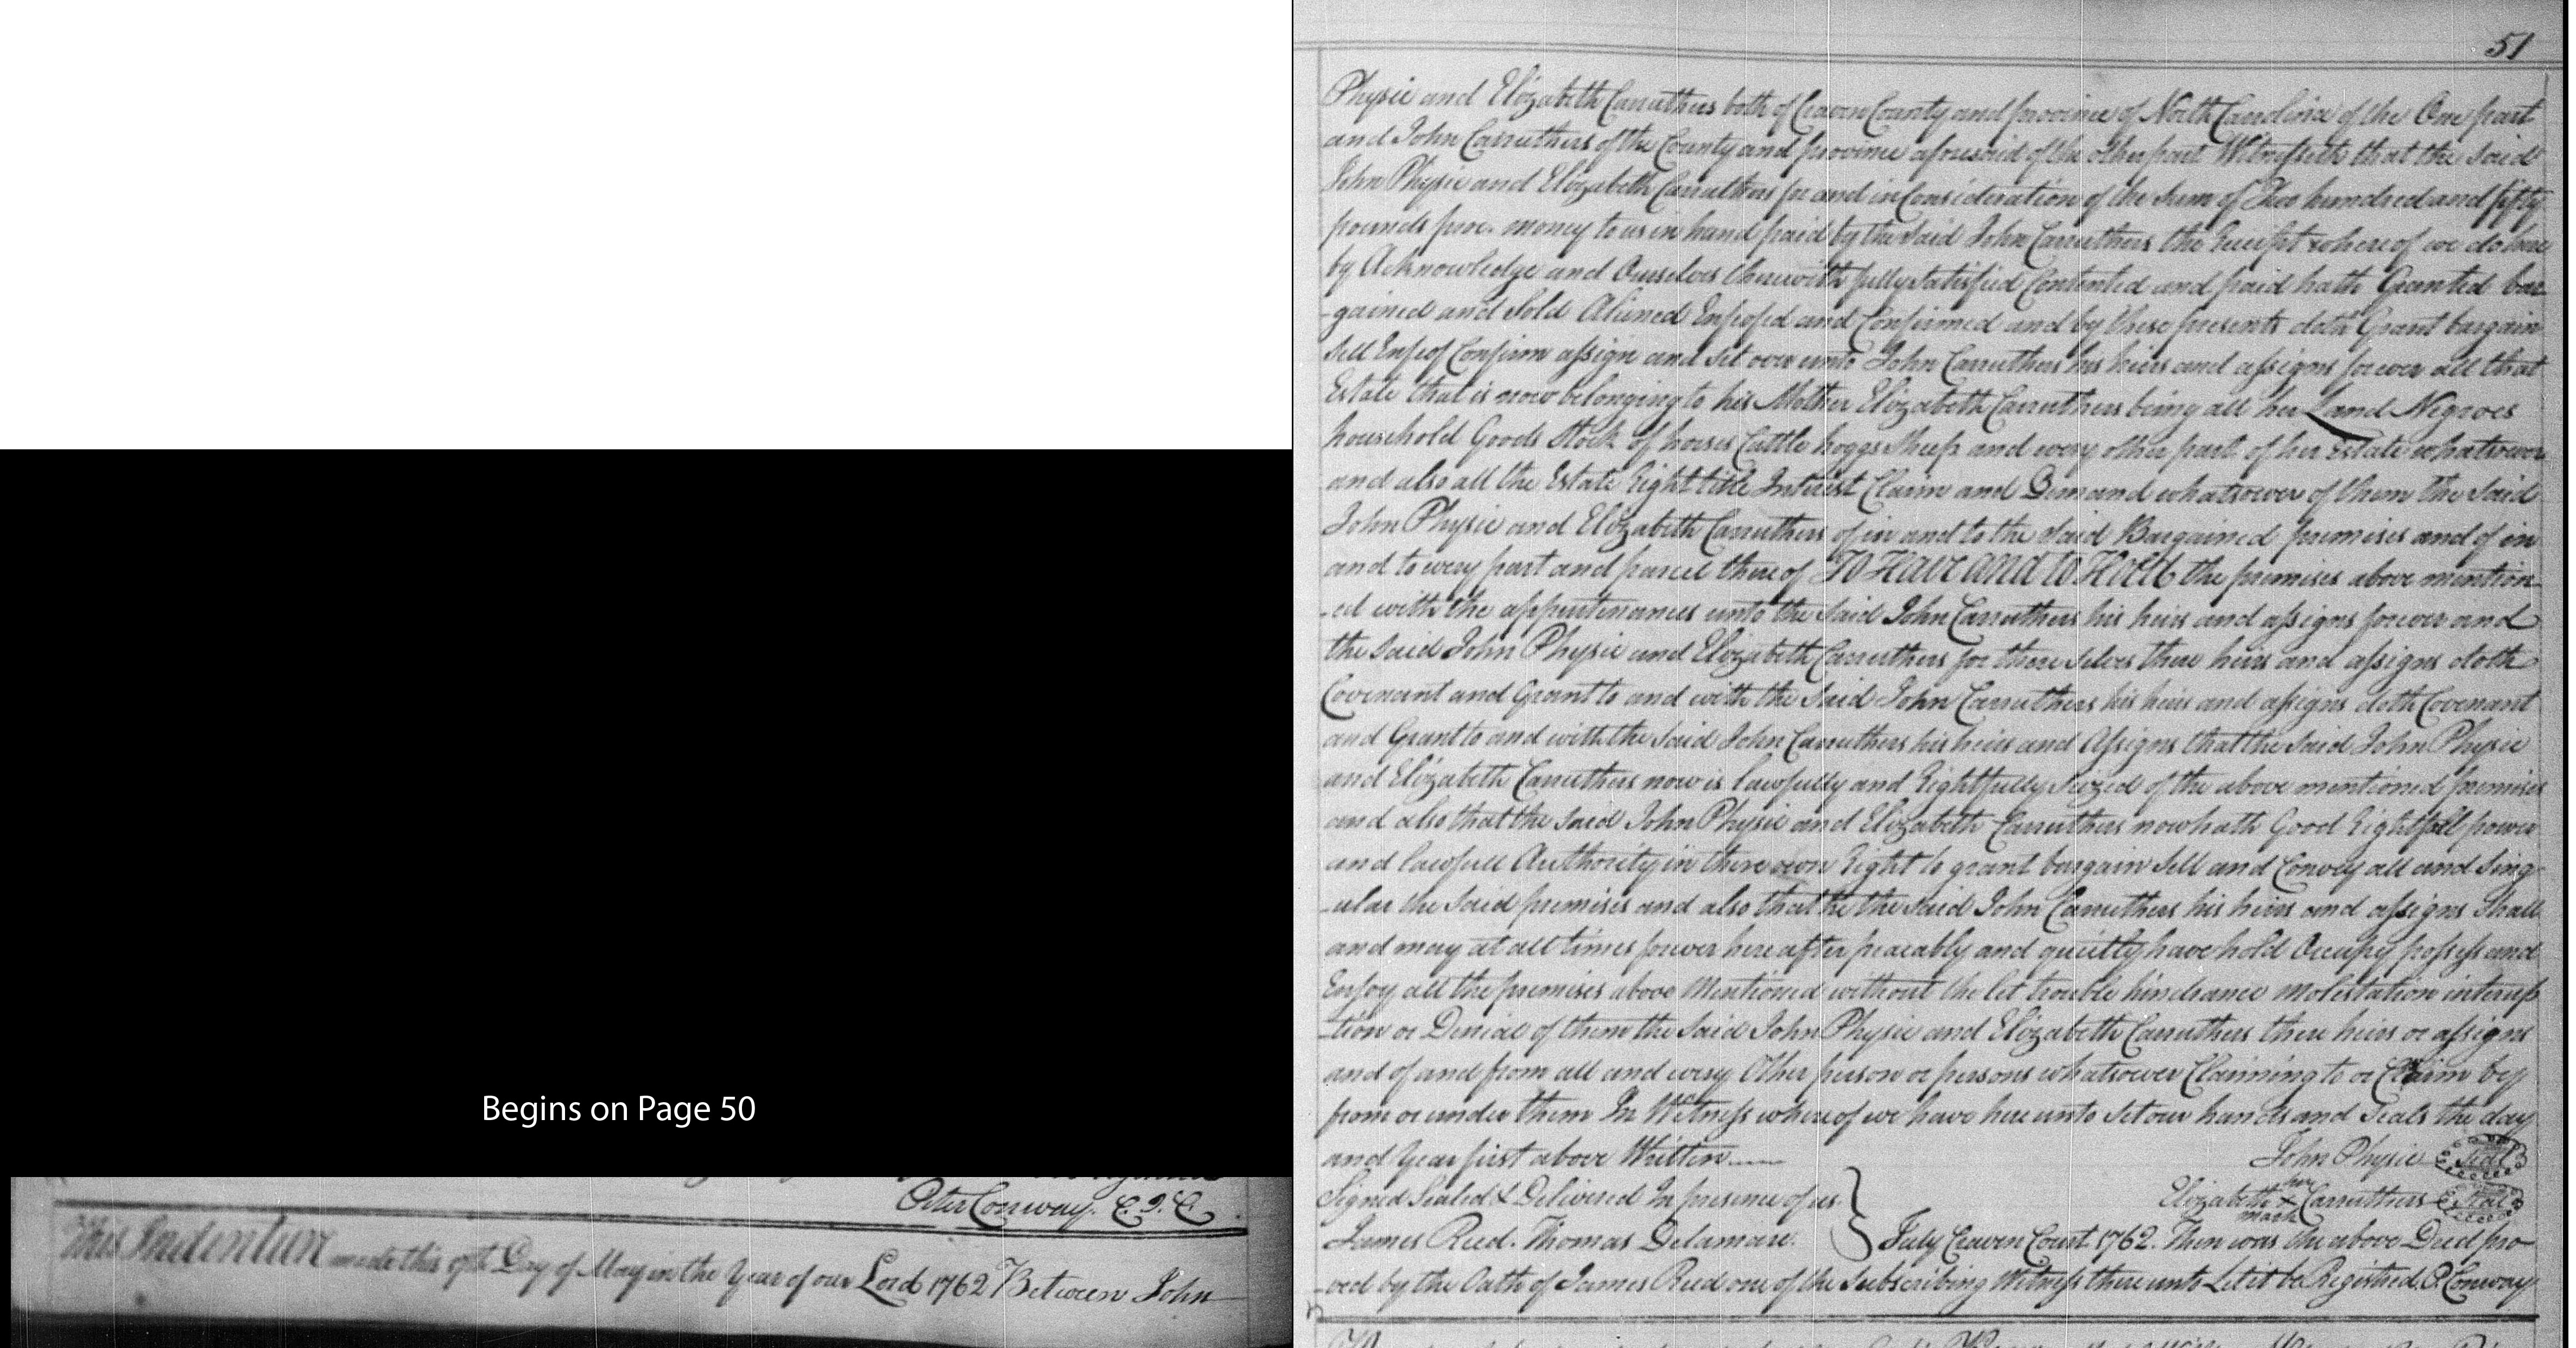 Begins on Page 50
Peter Conway. C. J. C.
This Indenture made this 9th Day of May in the Year of our Lord 1762 Between John
51
Physie and Elizabeth Carruthers both of Craven County and province of North Carolina of the One part
and John Carruthers of the County and province aforesaid of the other part Witnesseth that the Said
John Physie and Elizabeth Carruthers for and in Consideration of the Sum of Two hundred and fifty
pounds proc. money to us in hand paid by the Said John Carruthers the Receipt whereof we do here
by Acknowledge and Ourselves therewith fully Satisfied Contented and paid hath Granted bar
-gained and Sold Aliened Enfeofed and Confirmed and by these presents doth Grant bargain
Sell Enfeof Confirm assign and Set over unto John Carruthers his heirs and assigns forever all that
Estate that is now belonging to his Mother Elizabeth Carruthers being all her Land Negroes
household Goods Stock of horses Cattle hoggs Sheep and every other part of her Estate whatsoever
and also all the Estate Right title Interest Claim and Demand whatsoever of them the Said
John Physie and Elizabeth Carruthers of in and to the Said Bargained premises and of in
and to every part and parcel there of To Have and to Hold the premises above mention
-ed with the appurtinances unto the Said John Carruthers his heirs and assigns forever and
the Said John Physie and Elizabeth Carruthers for there Selves there heirs and assigns doth
Covenant and Grant to and with the Said John Carruthers his heirs and assigns doth Covenant
and Grant to and with the Said John Carruthers his heirs and Assigns that the Said John Physie
and Elizabeth Carruthers now is lawfully and Rightfully Seized of the above mentioned premises
and also that the Said John Physie and Elizabeth Carruthers now hath Good Right full power
and lawfull Authority in there own Right to grant bargain Sell and Convey all and Sing
-ular the Said premises and also that he the Said John Carruthers his heirs and assigns Shall
and may at all times forever here after peaceably and quietly have hold Occupy possess and
Enjoy all the premises above Mentioned without the let trouble hindrance Molestation interup
-tion or Denial of them the Said John Physie and Elizabeth Carruthers there heirs or assigns
and of and from all and every Other person or persons whatsoever Claiming to or Claim by
from or under them In Witness where of we have here unto Set our hands and Seals the day
and Year first above Written
John Physie Seal
Signed Sealed & Delivered In presence of us
her
Elizabeth X Carruthers Seal
mark
James Reed. Thomas Delamare.
July Craven Court 1762. Then was the above Deed pro
-ved by the Oath of James Reed one of the Subscribing Witness there unto Let it be Registred. P. Conway